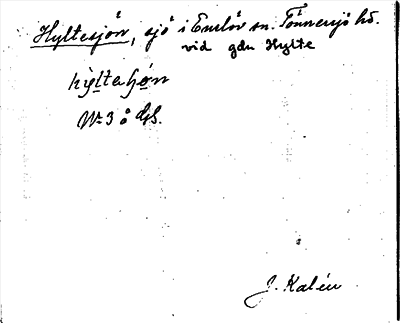 Hyltesjön, sjö i Enslöv sn. Tönnersjö hd.
vid gdn Hylte
hỳltahǫ́n
Nr 3 o GS.
J. Kalén